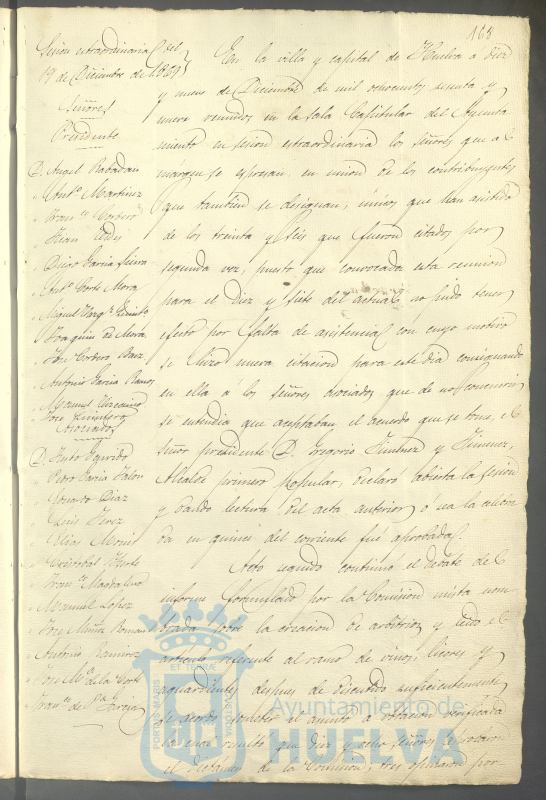 168
Sesion extraordinaria del
19 de Diciembre de 1869
Señores
Presidente
D. Angel Rabadan
" Antº Martinez
" Franco Cordero
" Juan
" Diego Garcia Sierra
" Antº Forte Mora
" Miguel
" Joaquin de Mora
" José Cordero
" Antonio Garcia Ramos
" Manuel Vizcaino
" José Quintero
Asociados
D. Justo Izquierdo
" Pedro Garcia Jalon
" Eduardo Diaz
" Luis Perez
" Elias
" Cristobal
" Franco
" Manuel Lopez
" José Muñoz Roman
" Antonio Ramirez
" José Mª de la Corte
" Franco de Pª Garcia
En la villa y capital de Huelva a diez
y nueve de Diciembre de mil ochocientos sesenta y
nueve reunidos en la sala Capitular del Ayunta
miento en sesion extraordinaria los señores que al
margen se espresan, en union de los contribuyentes
que tambien se designan, unicos que han asistido
de los treinta y seis que fueron citados por
segunda vez, puesto que convocada esta reunion
para el diez y siete del actual, no pudo tener
efecto por falta de asistencia, con cuyo motivo
se hizo nueva citacion para este dia consignando
en ella á los señores asociados que de no concurrir
se entendia que aceptaban el acuerdo que se tome, el
Señor presidente D. Gregorio Jimenez y Jimenez,
Alcalde primero popular, declaró abierta la sesion
y dando lectura del acta anterior ó sea la celebra
da en quince del corriente fué aprobada.
Acto seguido continuó el debate del
informe formulado por la Comision mista nom
brada sobre la creacion de arbitrios y leido el
articulo referente al ramo de vinos, licores y
aguardientes despues de discutido suficientemente
se acordó someter el asunto a votacion verificada
la cual resultó que diez y ocho señores aprobaron
el dictamen de la Comision, tres opinaron por
PORTUS MARIS ET TERRAE CUSTODIA
Ayuntamiento de
HUELVA